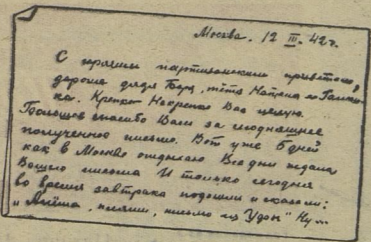 Москва. 12 III. 42 г.
С горячим партизанским приветом,
дорогие дядя Боря, тётя Наташа и Галочка
ка. Крепко Накрепко Вас целую.
Большое спасибо Вам за сегодняшнее
полученное письмо. Вот уже 5 дней
как в Москве отдыхаю. Все дни ждала
Вашего письма И только сегодня
во время завтрака подошли и сказали:
" пляши, письмо из Уфы" Ну...